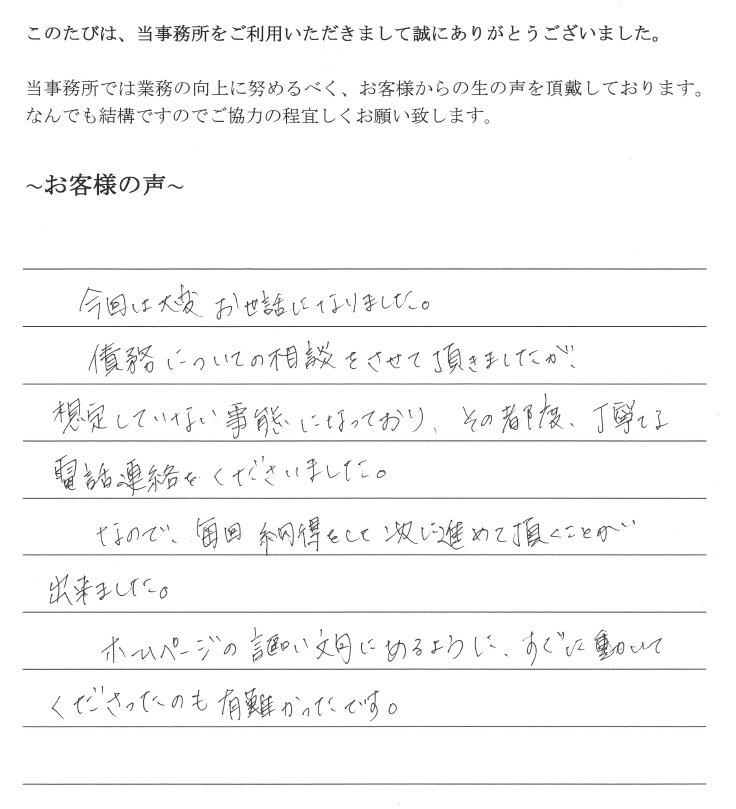 このたびは、当事務所をご利用いただきまして誠にありがとうございました。
当事務所では業務の向上に努めるべく、お客様からの生の声を頂戴しております。
なんでも結構ですのでご協力の程宜しくお願い致します。
~お客様の声~
今回は大変お世話になりました。
債務についての相談をさせて頂きましたが、
想定していない事態になっており、その都度、丁寧な
電話連絡をくださいました。
なので、毎回納得をして次に進めて頂くことが
出来ました。
ホームページの謳い文句にあるように、すぐに動いて
くださったのも有難かったです。